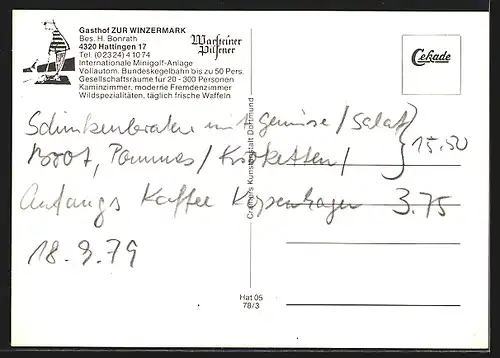 Gasthof ZUR WINZERMARK
Bes. H. Bonrath
4320 Hattingen 17
Tel. (02324) 41074
Internationale Minigolf-Anlage
Vollautom. Bundeskegelbahn bis zu 50 Pers.
Gesellschaftsräume für 20 - 300 Personen
Kaminzimmer, moderne Fremdenzimmer
Wildspezialitäten, täglich frische Waffeln
Warsteiner
Pilsner
Cekade
Schinkenbraten mit gemüse / Salat
Brot, Pommes / Kroketten / 15.50
Anfangs Kaffee Kopenhagen 3.75
18.3.79
Cramers Kunstanstalt Dortmund
Hat 05
78/3